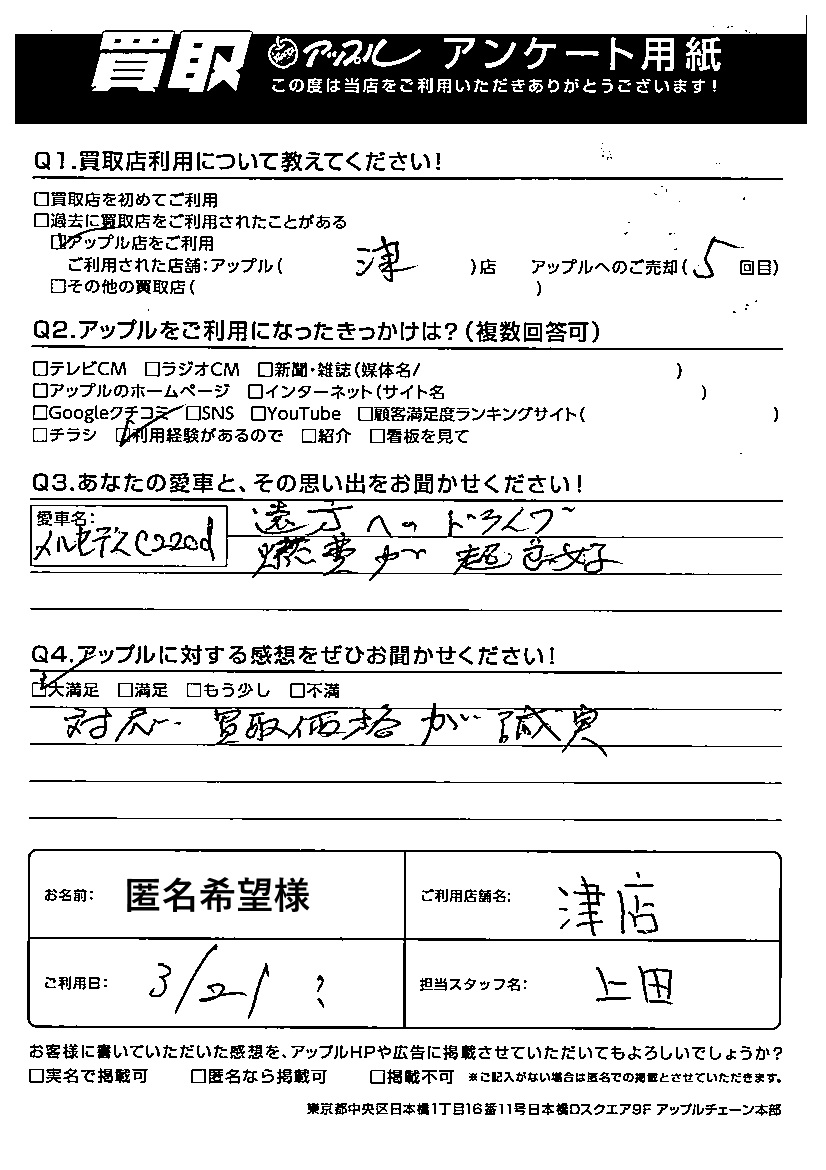 買取 アップル アンケート用紙
この度は当店をご利用いただきありがとうございます!
Q1.買取店利用について教えてください!
□買取店を初めてご利用
□過去に買取店をご利用されたことがある
☑アップル店をご利用
ご利用された店舗:アップル( 津 )店 アップルへのご売却( 5 回目)
□その他の買取店( )
Q2.アップルをご利用になったきっかけは?(複数回答可)
□テレビCM □ラジオCM □新聞・雑誌(媒体名/ )
□アップルのホームページ □インターネット(サイト名 )
□Googleクチコミ □SNS □YouTube □顧客満足度ランキングサイト( )
□チラシ ☑利用経験があるので □紹介 □看板を見て
Q3.あなたの愛車と、その思い出をお聞かせください!
愛車名:
メルセデスC220d
遠方へのドライブ
燃費が超良好
Q4.アップルに対する感想をぜひお聞かせください!
☑大満足 □満足 □もう少し □不満
対応・買取価格が誠実
お名前: 匿名希望様 ご利用店舗名: 津店
ご利用日: 3/21 ? 担当スタッフ名: 上田
お客様に書いていただいた感想を、アップルHPや広告に掲載させていただいてもよろしいでしょうか?
□実名で掲載可 □匿名なら掲載可 □掲載不可 ※ご記入がない場合は匿名での掲載とさせていただきます。
東京都中央区日本橋1丁目16番11号日本橋Dスクエア9F アップルチェーン本部